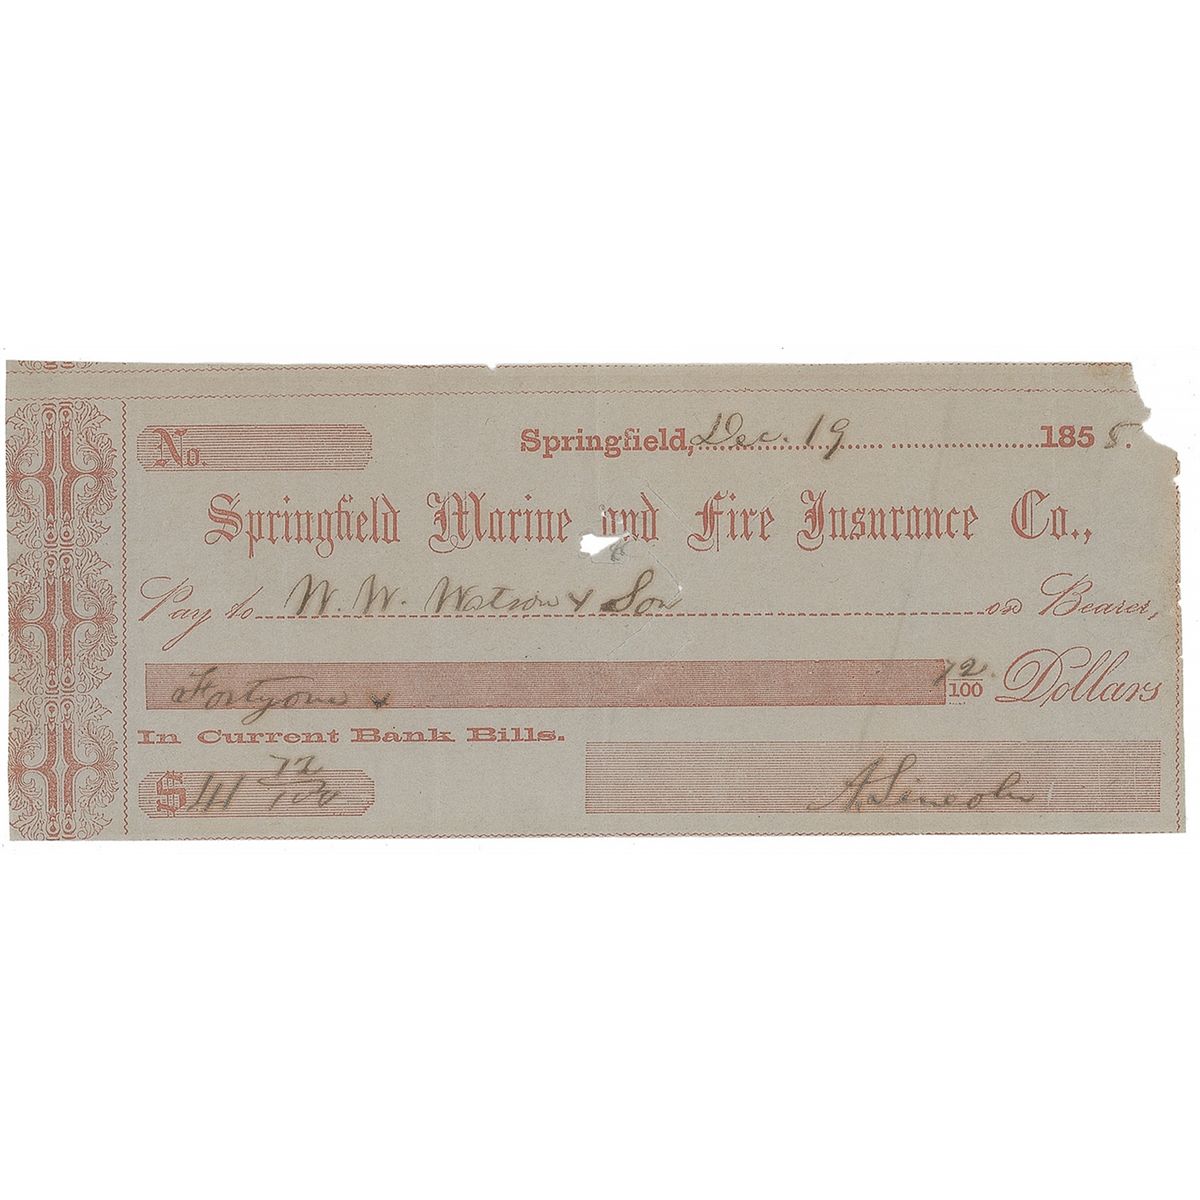 No. Springfield, Dec. 19 1858.
Springfield Marine and Fire Insurance Co.,
Pay to W. W. Watson & Son or Bearer,
Forty one & 72/100 Dollars
In Current Bank Bills.
$41 72/100 A. Lincoln